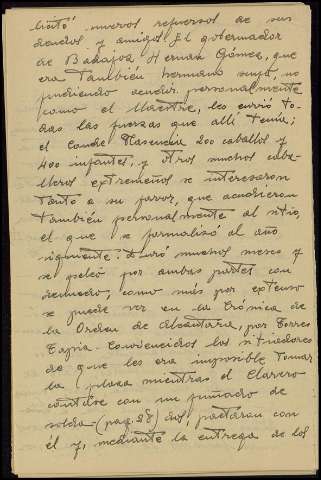 licitó nuevos refuerzos de sus
deudos y amigos. El gobernador
de Badajoz, Hernan Gómez, que
era también hermano suyo, no
pudiendo acudir personalmente
como el Maestre, le envió to-
das las fuerzas que allí tenía;
el Conde Plasencia 200 caballos y
400 infantes, y otros muchos caba-
lleros extremeños se interesaron
tanto a su favor, que acudieron
también personalmente al sitio,
el que se formalizó al año
siguiente. Duró muchos meses y
se peleó por ambas partes con
denuedo, como más por extenso
se puede ver en la Crónica de
la Orden de Alcántara, por Torres
Tapia. Convencidos los sitiadores
de que les era imposible tomar
la plaza mientras el Clavero
contase con un puñado de
solda- (pag. 28) dos, pactaron con
él y, mediante la entrega de los